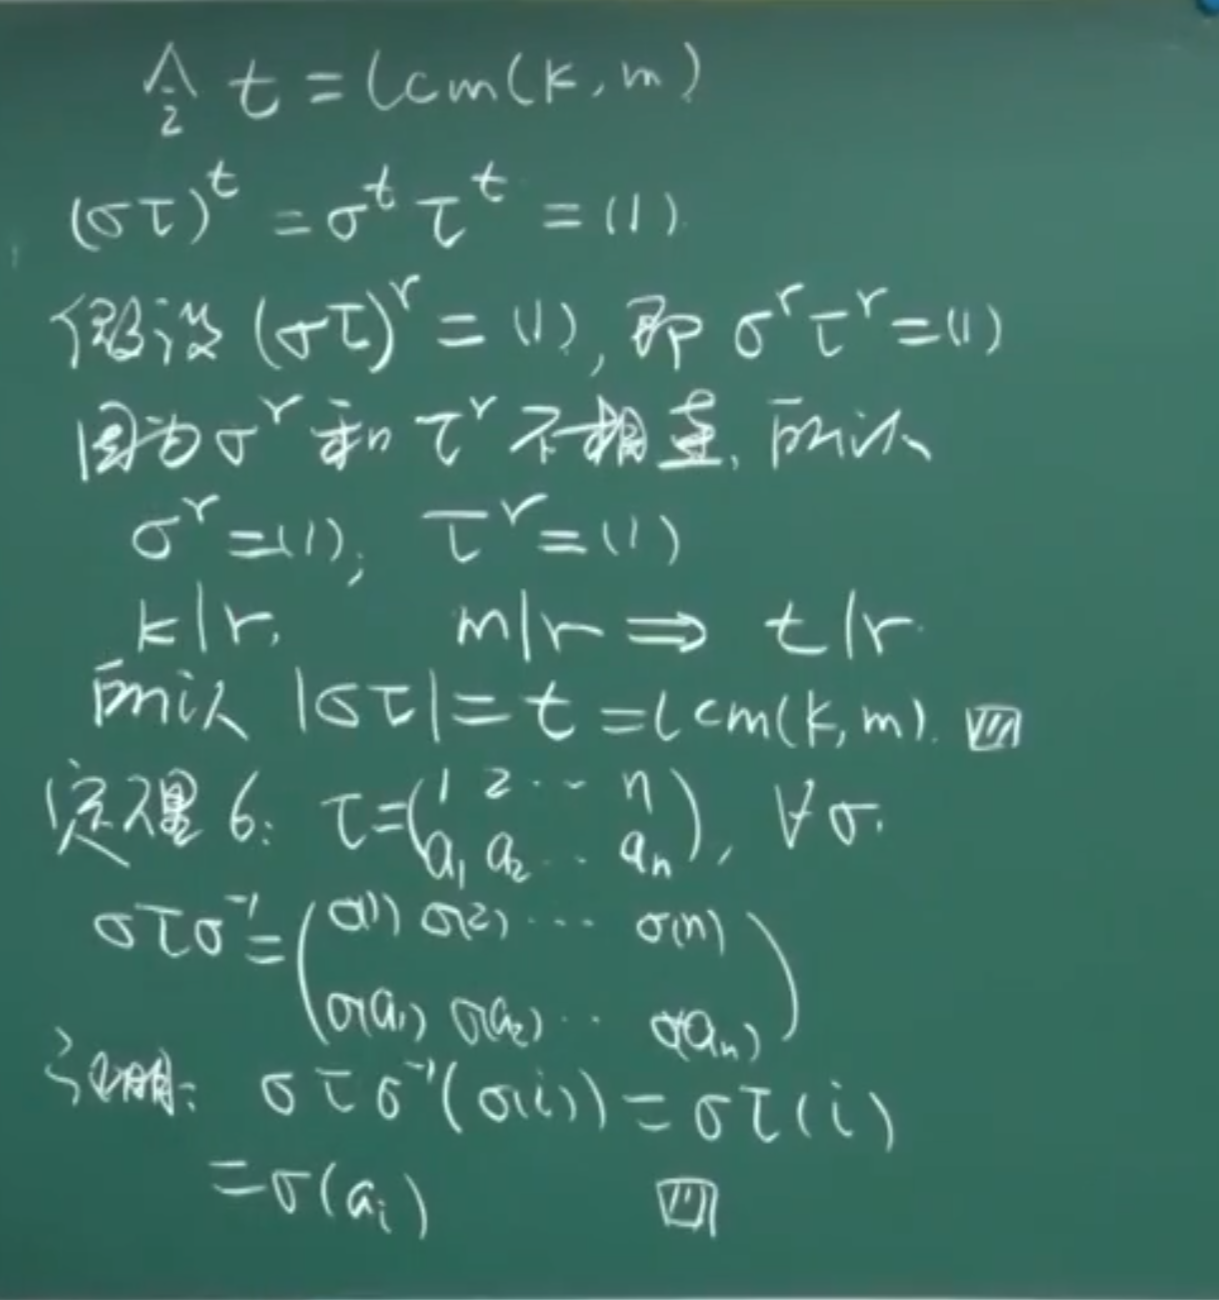 令 t = lcm(k, m)
(στ)^t = σ^t τ^t = (1).
假设 (στ)^r = (1), 即 σ^r τ^r = (1)
因为 σ^r 和 τ^r 不相连, 所以
σ^r = (1), τ^r = (1)
k|r, m|r ⇒ t|r.
所以 |στ| = t = lcm(k, m). ▨
定理 6: τ = (1 2 ⋯ n / a₁ a₂ ⋯ aₙ), ∀σ.
στσ⁻¹ = (σ(1) σ(2) ⋯ σ(n) / σ(a₁) σ(a₂) ⋯ σ(aₙ))
证明: στσ⁻¹(σ(i)) = στ(i)
= σ(aᵢ) ▨